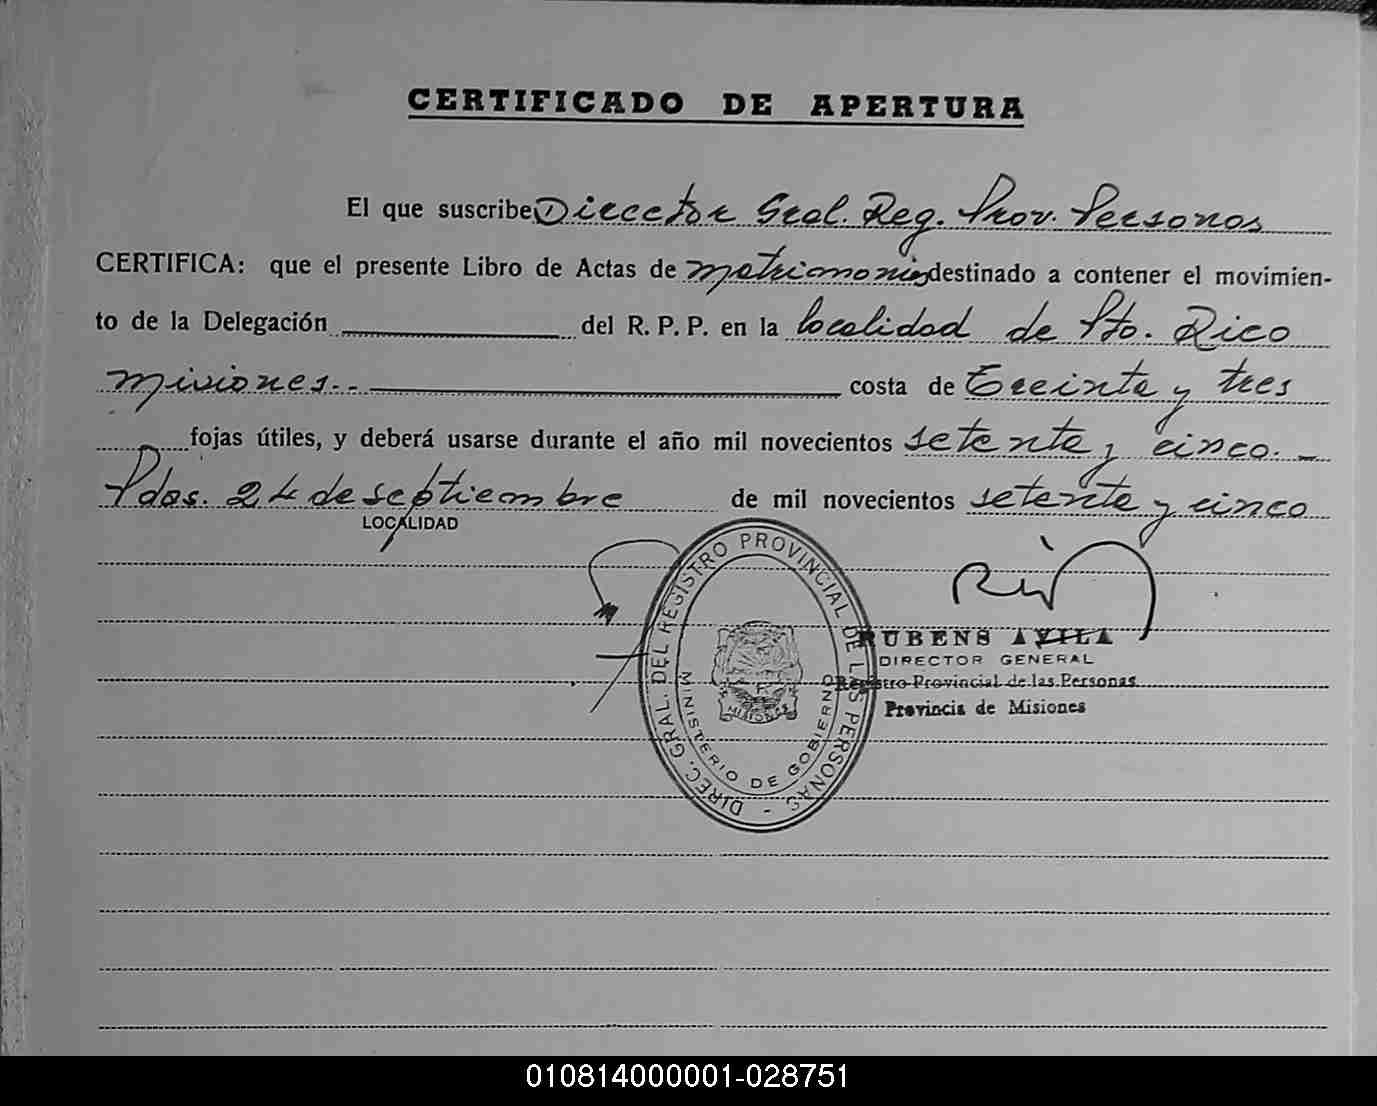 CERTIFICADO DE APERTURA
El que suscribe Director Gral. Reg. Prov. Personas
CERTIFICA: que el presente Libro de Actas de matrimonios destinado a contener el movimien-
to de la Delegación del R. P. P. en la localidad de Pto. Rico
Misiones.- costa de Treinta y tres
fojas útiles, y deberá usarse durante el año mil novecientos setenta y cinco. -
Pdas. 24 de septiembre de mil novecientos setenta y cinco
LOCALIDAD
DIREC. GRAL. DEL REGISTRO PROVINCIAL DE LAS PERSONAS -
MINISTERIO DE GOBIERNO
MISIONES
RUBENS AVILA
DIRECTOR GENERAL
Registro Provincial de las Personas
Provincia de Misiones
010814000001-028751